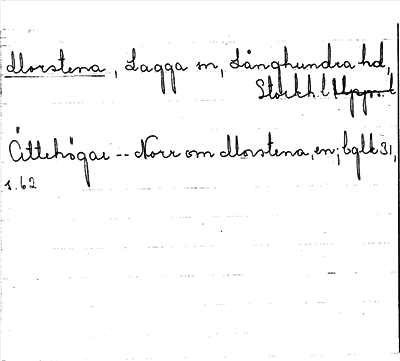 Morstena, Lagga sn, Långhundra hd,
Stockh. l. Upps. l
Ättehögar -- Norr om Morstena, en; bglk 31,
s. 62